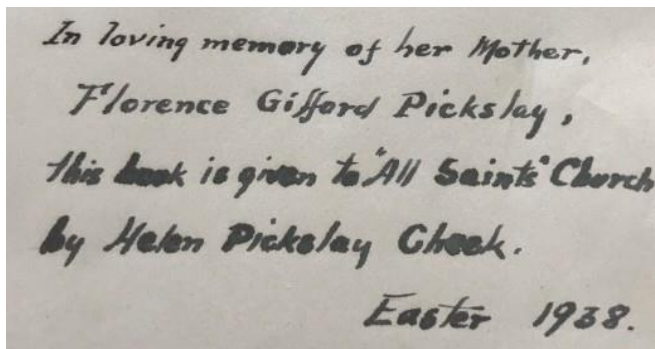 In loving memory of her Mother,
Florence Gifford Pickslay,
this book is given to "All Saints" Church
by Helen Pickslay Cheek.
Easter 1938.